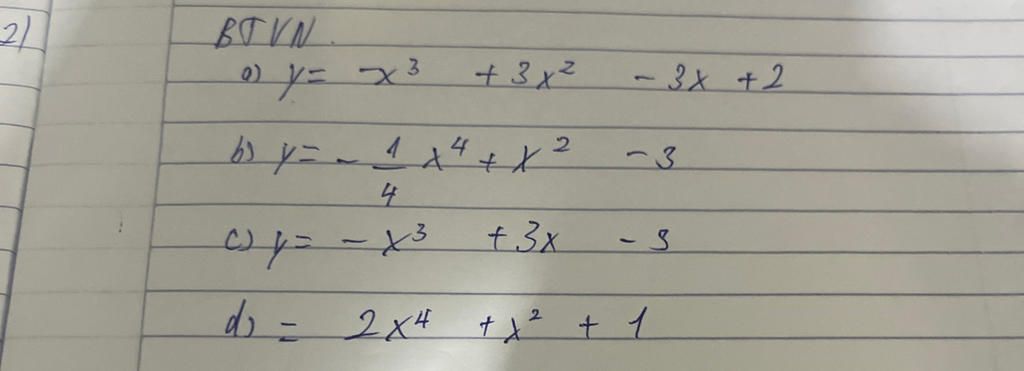 2)
BTVN.
a) y = -x³ + 3x² - 3x + 2
b) y = - 1/4 x⁴ + x² - 3
c) y = - x³ + 3x - 3
d) = 2x⁴ + x² + 1